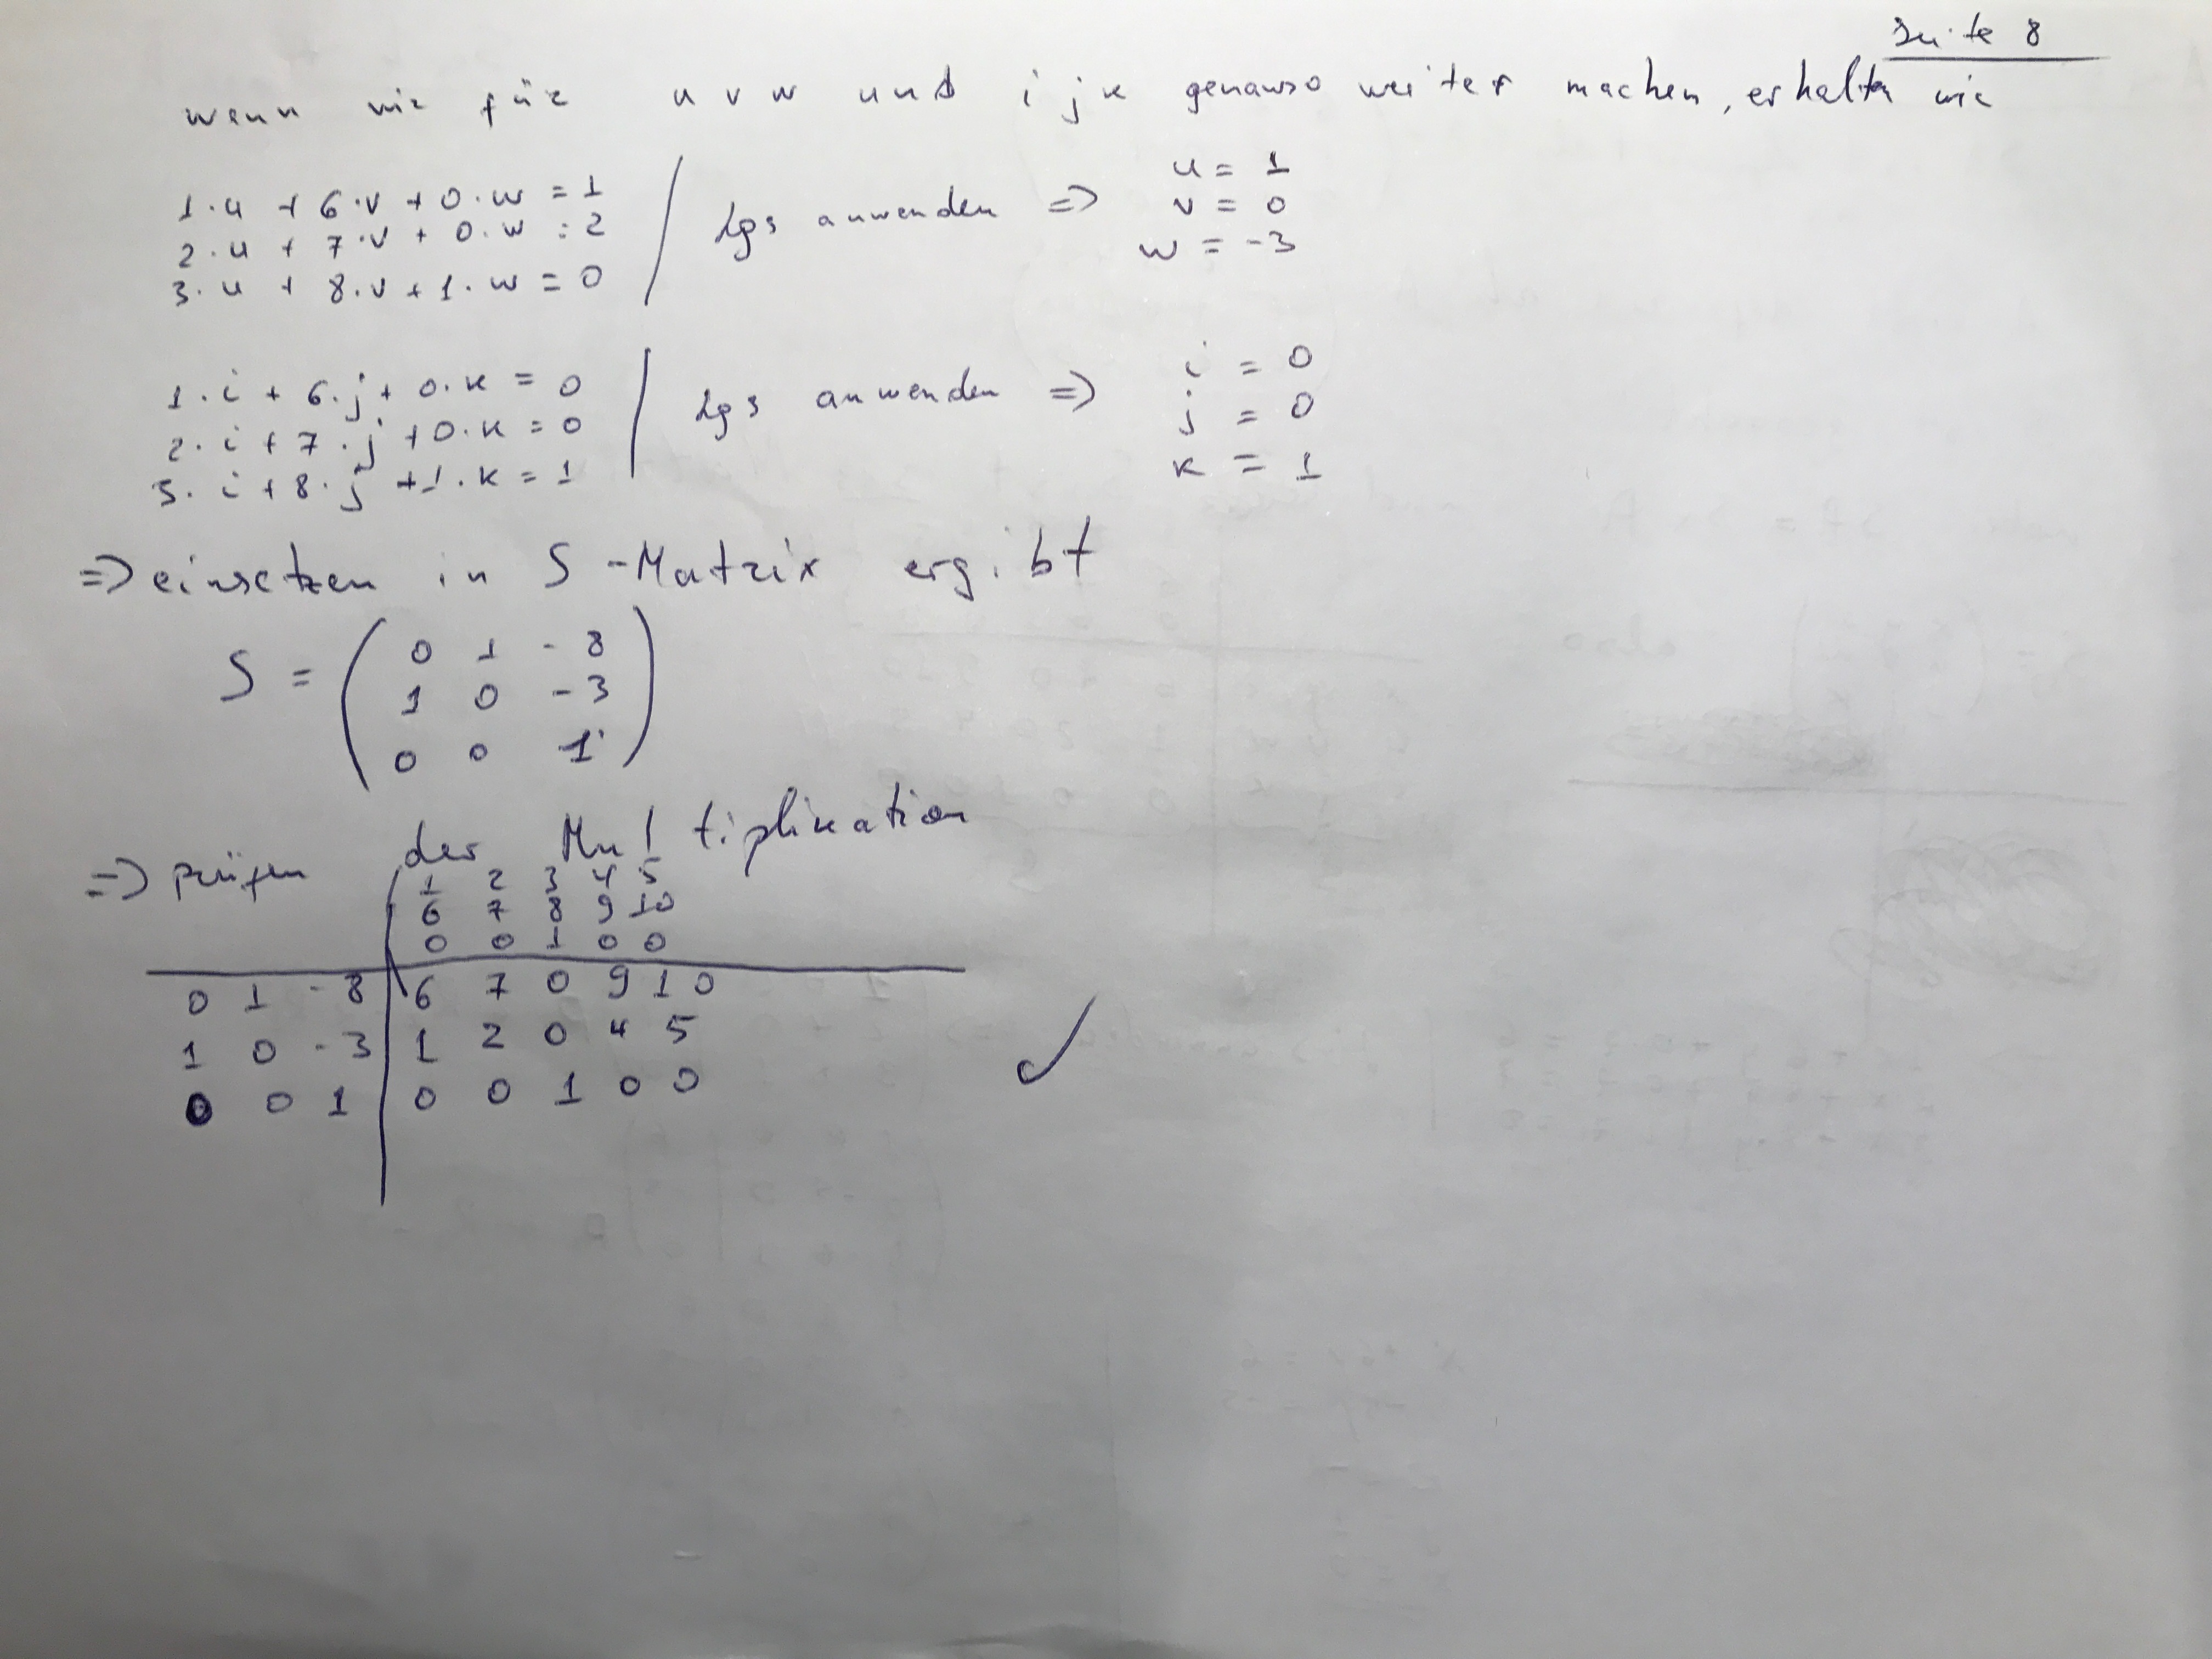 Seite 8
wenn wir für u v w und i j k genauso weiter machen, erhalten wir
1·u + 6·v + 0·w = 1
2·u + 7·v + 0·w = 2
3·u + 8·v + 1·w = 0
lgs anwenden => u = 1
v = 0
w = -3
1·i + 6·j + 0·k = 0
2·i + 7·j + 0·k = 0
3·i + 8·j + 1·k = 1
lgs anwenden => i = 0
j = 0
k = 1
=> einsetzen in S-Matrix ergibt
S = ( 0 1 -8
1 0 -3
0 0 1 )
=> prüfen der Multiplikation
1 2 3 4 5
6 7 8 9 10
0 0 1 0 0
0 1 -8 | 6 7 0 9 10
1 0 -3 | 1 2 0 4 5 ✓
0 0 1 | 0 0 1 0 0